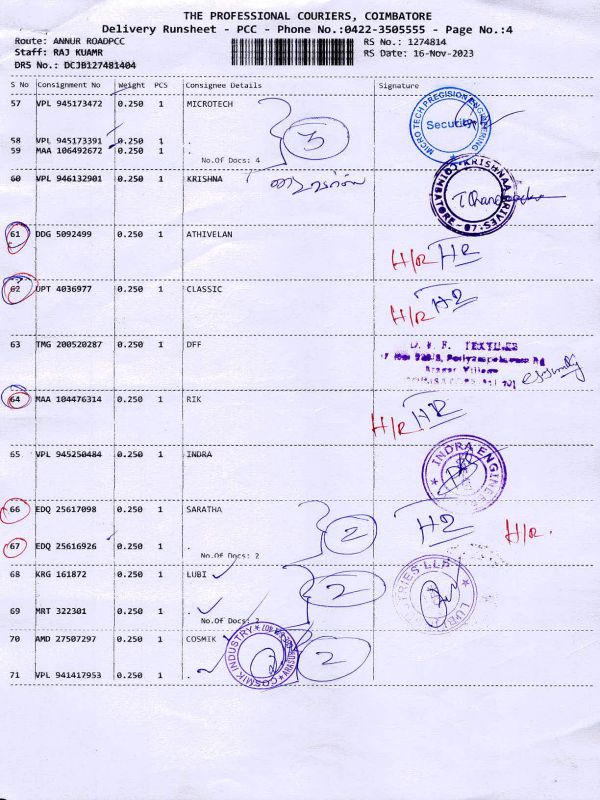 THE PROFESSIONAL COURIERS, COIMBATORE
Delivery Runsheet - PCC - Phone No.:0422-3505555 - Page No.:4
Route: ANNUR ROADPCC RS No.: 1274814
Staff: RAJ KUAMR RS Date: 16-Nov-2023
DRS No.: DCJB127481404
S No Consignment No Weight PCS Consignee Details Signature
57 VPL 945173472 0.250 1 MICROTECH
MICRO TECH PRECISION ENGINEERING
Security
3
58 VPL 945173391 0.250 1 .
59 MAA 106492672 0.250 1 .
No.Of Docs: 4
60 VPL 946132901 0.250 1 KRISHNA
61 DDG 5092499 0.250 1 ATHIVELAN
H/R H2
62 UPT 4036977 0.250 1 CLASSIC
H/R H2
63 TMG 200520287 0.250 1 DFF
TEXTILES
64 MAA 104476314 0.250 1 RIK
H/R H2
65 VPL 945250484 0.250 1 INDRA
INDRA ENGINEE
66 EDQ 25617098 0.250 1 SARATHA
2 H2 H/R.
67 EDQ 25616926 0.250 1 .
No.Of Docs: 2
68 KRG 161872 0.250 1 LUBI
2
69 MRT 322301 0.250 1 .
No.Of Docs: 2
70 AMD 27507297 0.250 1 COSMIK
COSMIK INDUSTRY
2
71 VPL 941417953 0.250 1 .